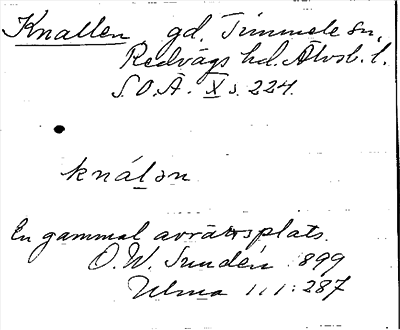 Knallen, gd. Timmele sn,
Redvägs hd. Älvsb. l.
S.O.Ä. X s. 224.
knálən
En gammal avrättsplats.
O. W. Sundén 1899
Ulma 111:287